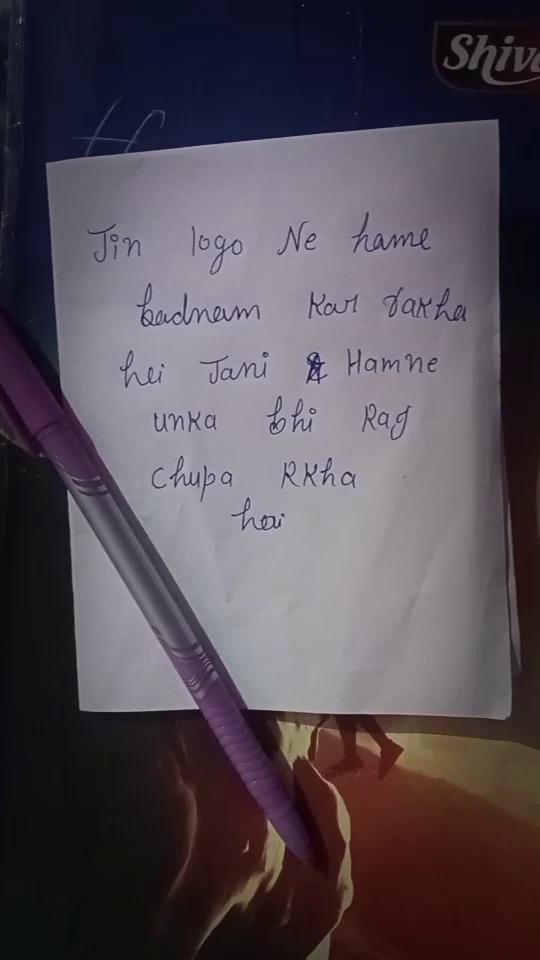 Shiv
Jin logo Ne hame
badnam kar rakha
hei Jani Hamne
unka bhi Rag
Chupa Rkha
hai